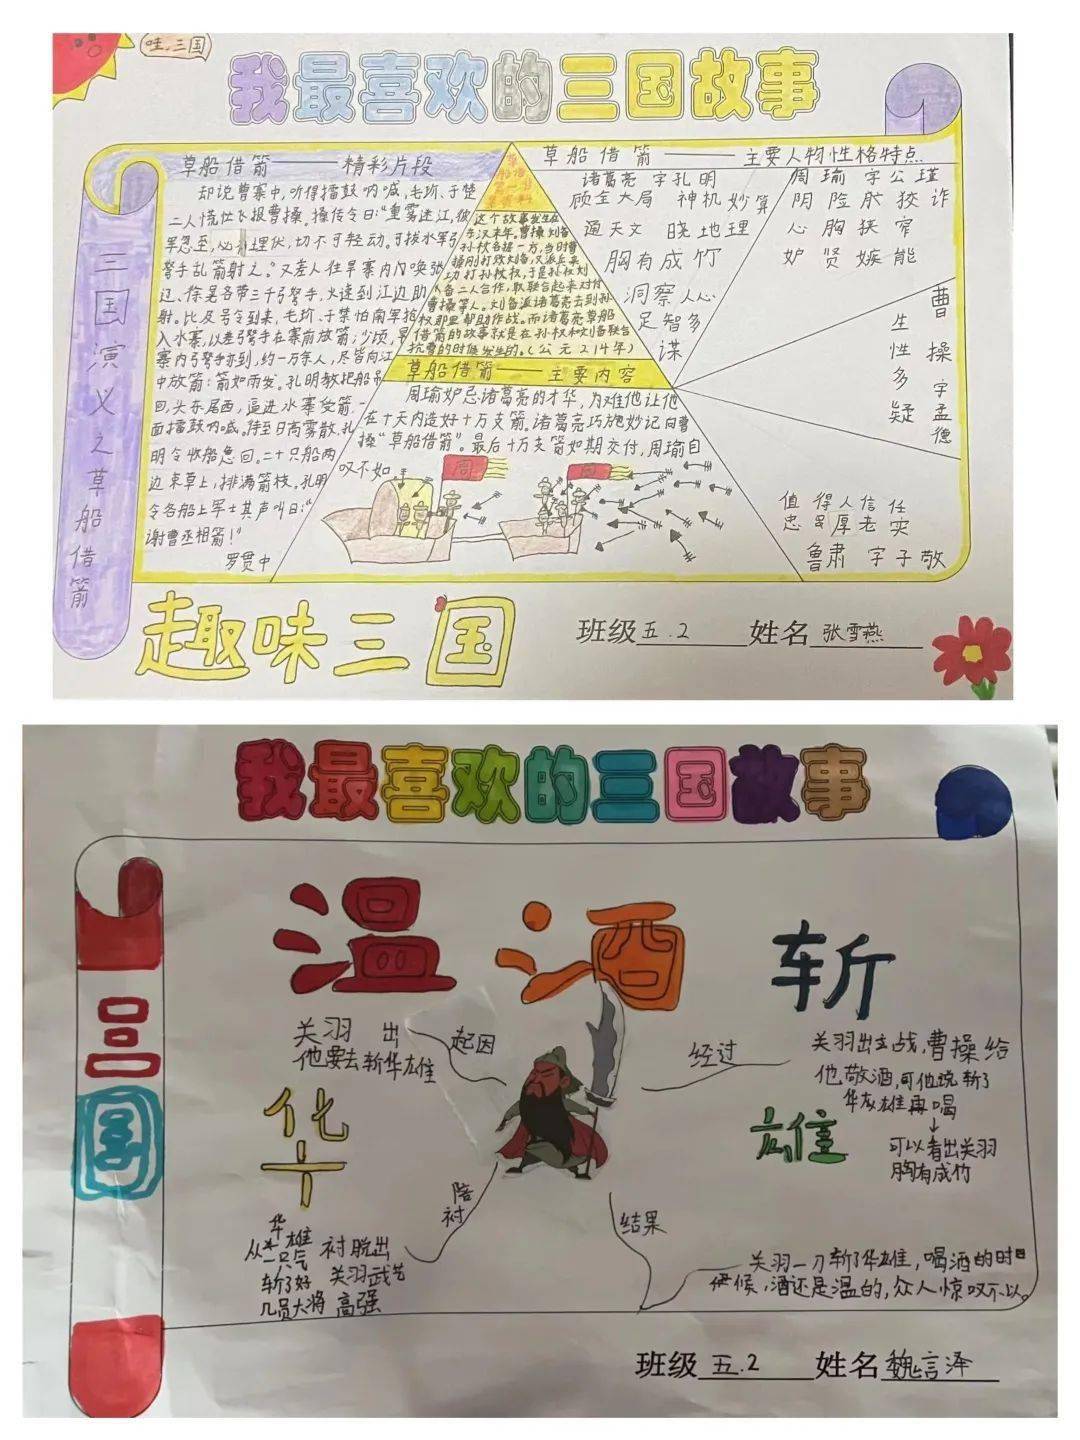 哇，三国
我最喜欢的三国故事
三国演义之草船借箭
草船借箭——精彩片段
却说曹寨中，听得擂鼓呐喊，毛玠、于禁
二人慌忙飞报曹操。操传令曰：“重雾迷江，彼
军忽至，必有埋伏，切不可轻动。可拨水军弓
弩手乱箭射之。”又差人往旱寨内门唤张
辽、徐晃各带三千弓弩手，火速到江边助
射。比及号令到来，毛玠、于禁怕南军抢
入水寨，以差弓弩手在寨前放箭；少顷，旱
寨内弓弩手亦到，约一万余人，尽皆向江
中放箭：箭如雨发。孔明教把船吊
回，头东尾西，逼进水寨受箭，一
面擂鼓呐喊。待至日高雾散，孔
明令收船急回。二十只船两
边束草上，排满箭枝。孔明
令各船上军士其声叫曰：“
谢曹丞相箭！”
罗贯中
这个故事发生在
东汉末年。曹操 刘备
孙权各据一方，当时曹
操刚打败刘备，又派兵来
功打孙权，于是孙权刘
备二人合作，联合起来对付
曹操军人。刘备派诸葛亮去到孙
权那里帮助作战。而诸葛亮草船
借箭的故事就是在孙权和刘备联合
抗曹的时候发生的。（公元214年）
草船借箭——主要内容
周瑜妒忌诸葛亮的才华，为难他让他
在十天内造好十万支箭。诸葛亮巧施妙记向曹
操“草船借箭”。最后十万支箭如期交付，周瑜自
叹不如。
草船借箭——主要人物性格特点
诸葛亮 字孔明
顾全大局 神机妙算
通天文 晓地理
胸有成竹
洞察人心
足智多
谋
周瑜 字公瑾
阴险 狡诈
心胸狭窄
妒贤嫉能
曹操 字孟德
生性多疑
值得人信任
忠厚老实
鲁肃 字子敬
趣味三国
班级五.2 姓名张雪燕
我最喜欢的三国故事
三国
温酒斩
华雄
起因
关羽 出
他要去斩华雄
经过
关羽出主战，曹操给
他敬酒，可他说斩了
华雄再喝
↓
可以看出关羽
胸有成竹
陪衬
华雄
一只气
斩了好
几员大将
衬脱出
关羽武艺
高强
结果
关羽一刀斩了华雄，喝酒的时
候，酒还是温的，众人惊叹不以。
班级五.2 姓名魏言泽